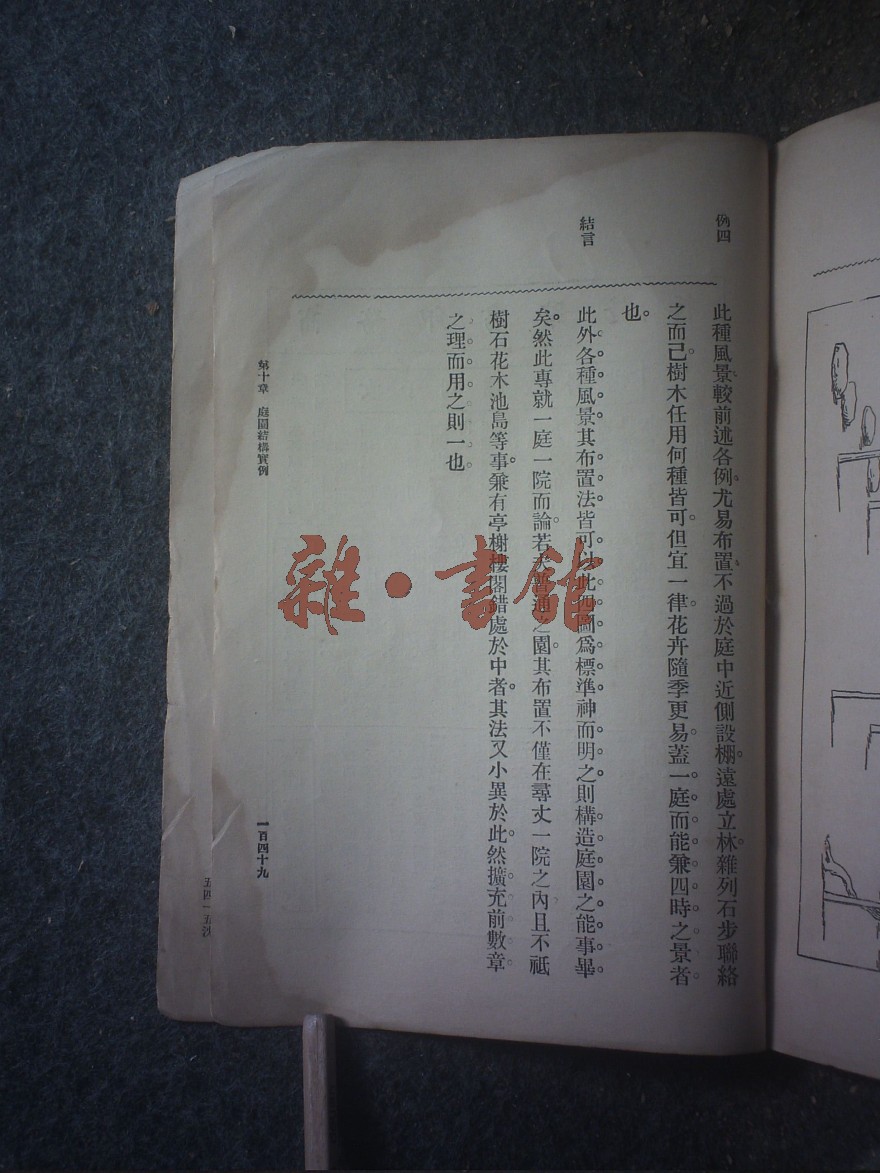 例四
此種風景較前述各例。尤易布置。不過於庭中近側設棚。遠處立林。雜列石步聯絡
之而已。樹木任用何種皆可。但宜一律。花卉隨季更易。蓋一庭而能兼四時之景者
也。
結言
此外各種風景。其布置法。皆可以此四圖爲標準。神而明之。則構造庭園之能事畢
矣。然此專就一庭一院而論。若夫普通之園。其布置不僅在尋丈一院之內。且不祗
樹石花木池島等事。兼有亭榭樓閣錯處於中者。其法又小異於此。然擴充前數章
之理而用之。則一也。
第十章 庭園結構實例
一百四十九
五四一五沙
雜·書館